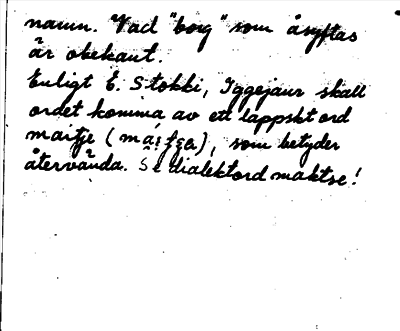 namn. Vad "borg" som åsyftas
är obekant.
Enligt E. Stokki, Iggejaur skall
ordet komma av ett lappskt ord
maitje (                ), som betyder
återvända. Se dialektord maktse!